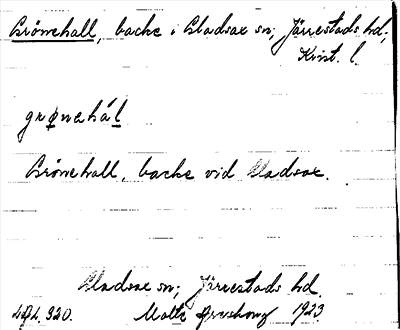 Grönehall, backe i Gladsax sn; Järrestads hd,
Krist. l.
grønehál
Grönehall, backe vid Gladsax.
Gladsax sn; Järrestads hd.
320. Malte 1923